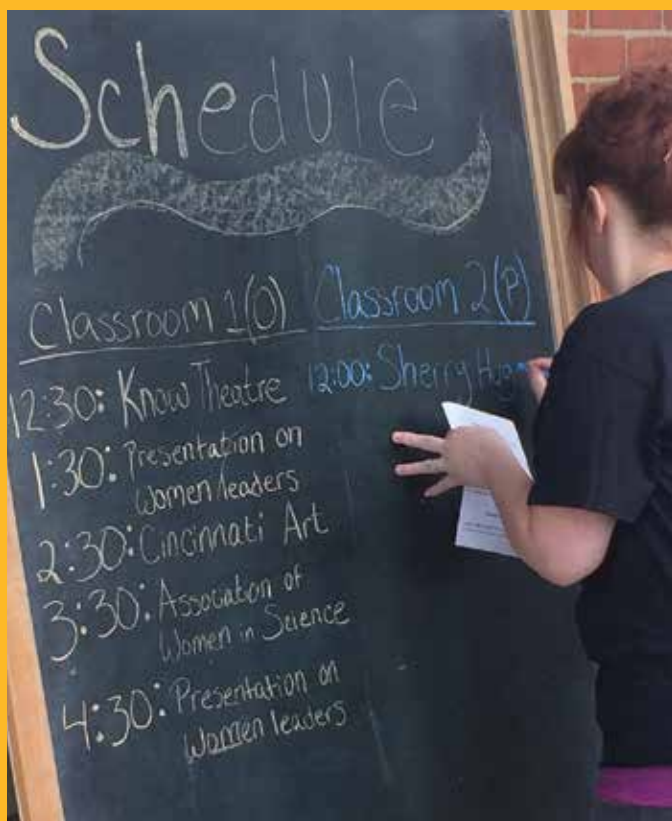 Schedule
Classroom 1(O)
12:30: Know Theatre
1:30: Presentation on
Women leaders
2:30: Cincinnati Art
3:30: Association of
Women in Science
4:30: Presentation on
Women leaders
Classroom 2(P)
12:00: Sherry